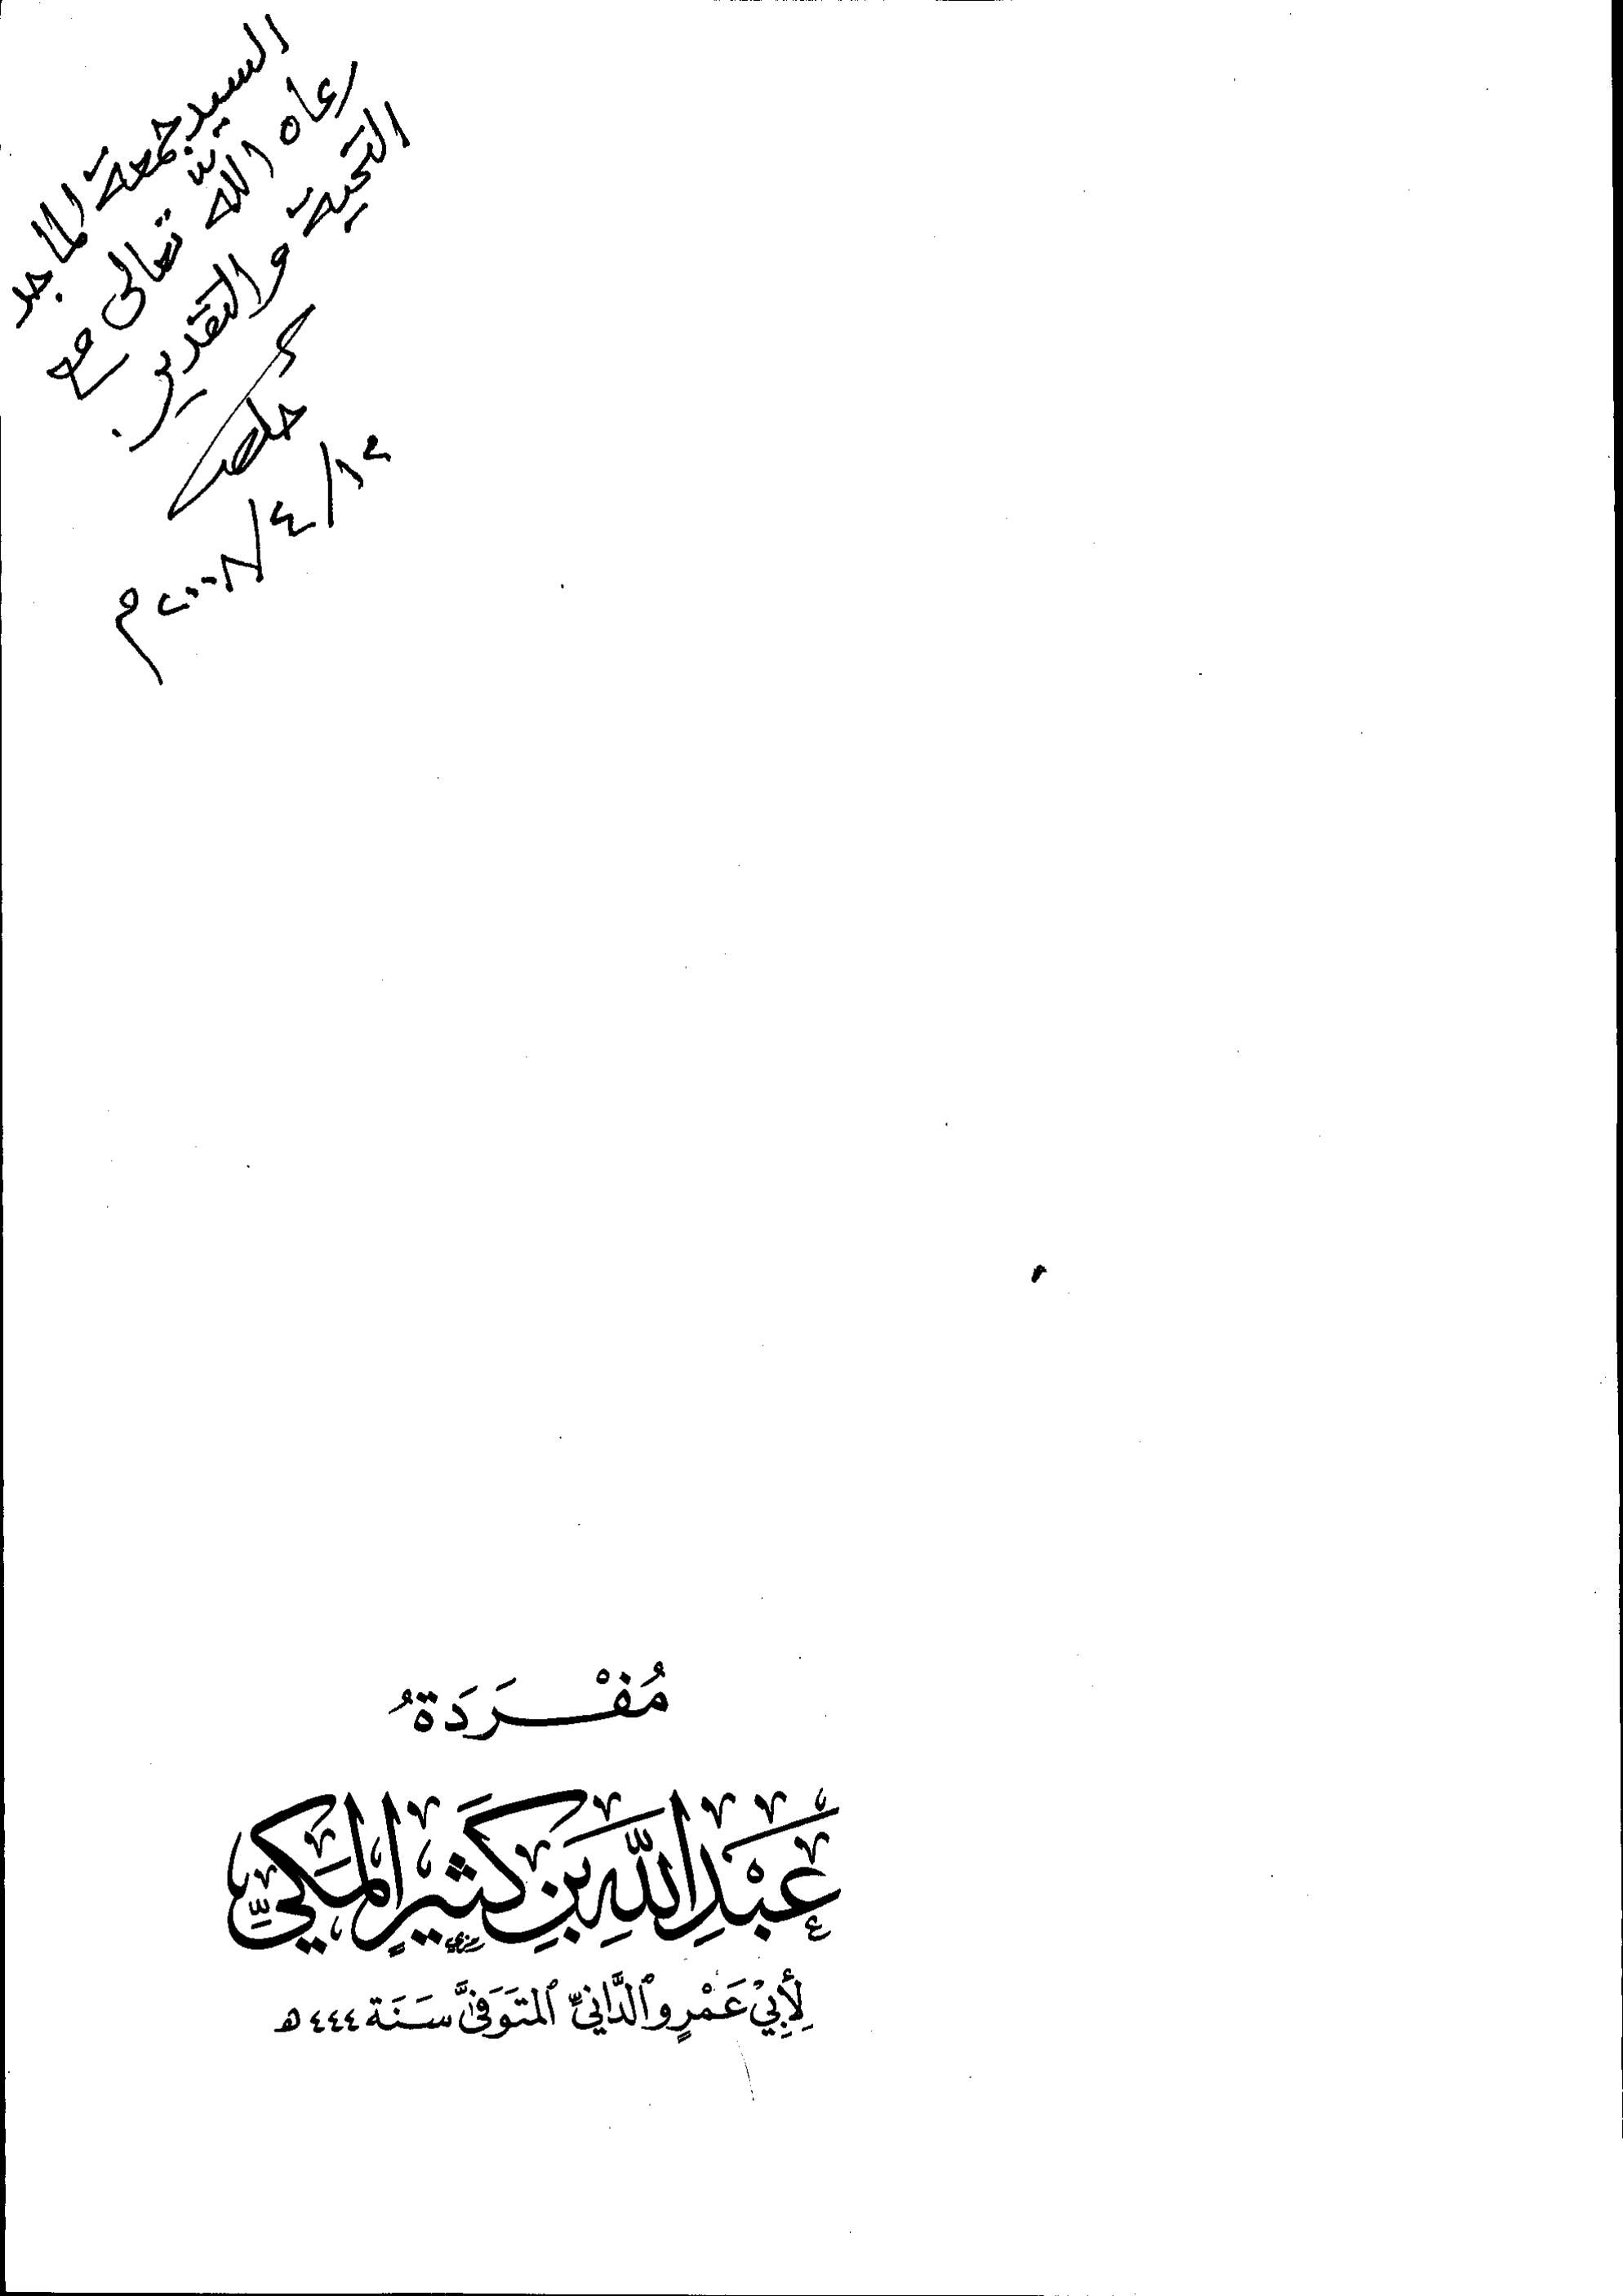 السيد جمعة الماجد
رعاه الله تعالى مع
التحية والتقدير.
١٢/٤/٢٠٠٨م
مُفْرَدَةُ
عَبْدِ اللَّهِ بْنِ كَثِيرٍ الْمَكِّيِّ
لِأَبِيْ عَمْرٍو ٱلدَّانِيِّ ٱلمتَوَفَّىٰ سَنَة ٤٤٤ هـ